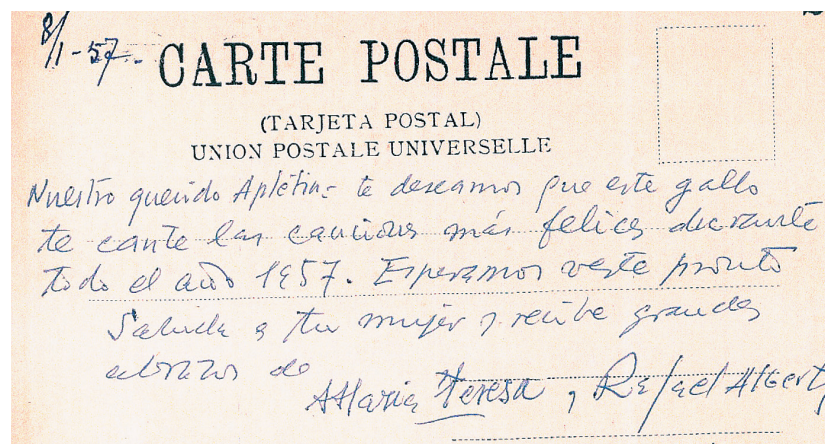 8/1-57-
CARTE POSTALE
(TARJETA POSTAL)
UNION POSTALE UNIVERSELLE
Nuestro querido Apletin- te deseamos que este gallo
te cante las canciones más felices durante
todo el año 1957. Esperamos verte pronto
Saluda a tu mujer y recibe grandes
abrazos de
María Teresa y Rafael Alberti